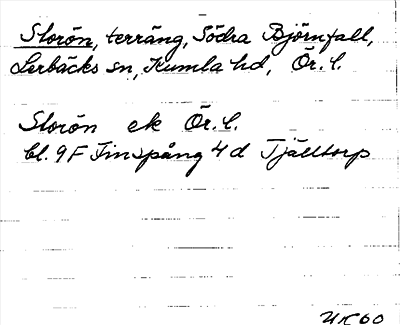 Storön, terräng, Södra Björnfall,
Lerbäcks sn, Kumla hd, Ör. l.
Storön ek Ör. l.
bl. 9F Finspång 4 d Tjälltorp
UK60